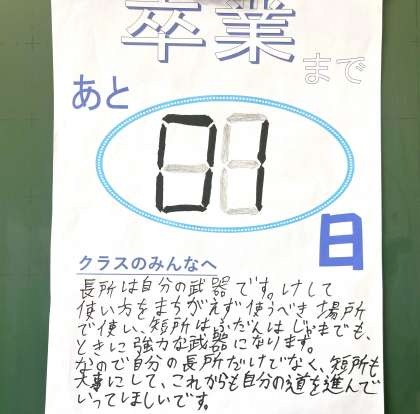 卒業
まで
あと
01
日
クラスのみんなへ
長所は自分の武器です。けして
使い方をまちがえず使うべき場所
で使い、短所はふだんはじゃまでも、
ときに強力な武器になります。
なので自分の長所だけでなく、短所も
大事にして、これからも自分の道を進んで
いってほしいです。